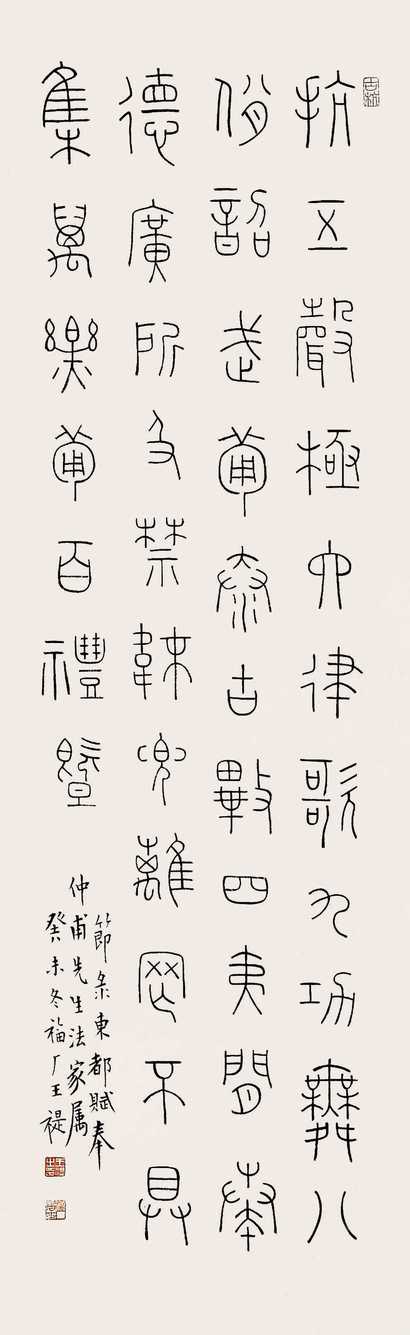 抗五聲極六律歌九功舞八
佾韶武備泰古畢四夷間奏
德廣所及禁韎兜離罔不具
集萬樂備百禮暨
節彔東都賦奉
仲甫先生法家属
癸未冬福厂王禔